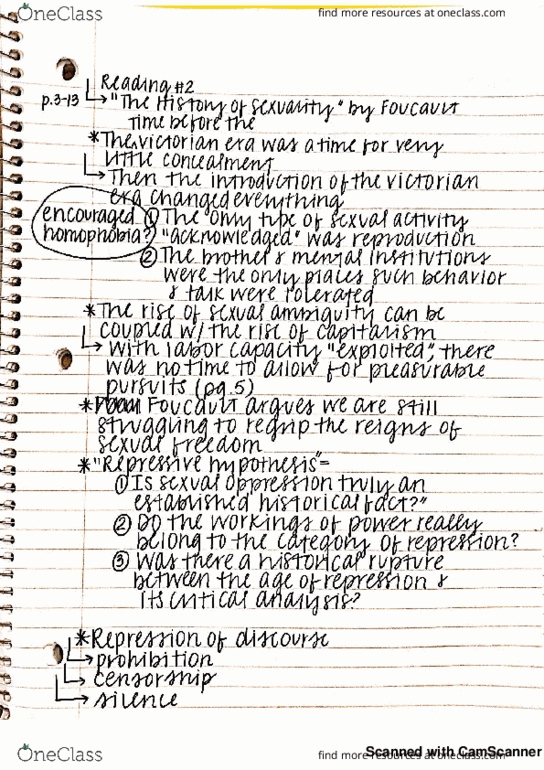 OneClass
find more resources at oneclass.com
Reading #2
p.3-13 "The History of sexuality" by Foucault
time before the
*The victorian era was a time for very
little concealment
Then the introduction of the victorian
era changed everything
encouraged homophobia?
① The only type of sexual activity
"acknowledged" was reproduction
② The brothel & mental institutions
were the only places such behavior
& talk were tolerated
*The rise of sexual ambiguity can be
coupled w/ the rise of capitalism
with labor capacity "exploited", there
was no time to allow for pleasurable
pursuits (pg.5)
* Foucault argues we are still
struggling to regrip the reigns of
sexual freedom
*"Repressive hypothesis"=
① Is sexual oppression truly an
established historical fact?"
② Do the workings of power really
belong to the category of repression?
③ Was there a historical rupture
between the age of repression &
its critical analysis?
*Repression of discourse
prohibition
censorship
silence
OneClass
find more resources at oneclass.com
Scanned with CamScanner